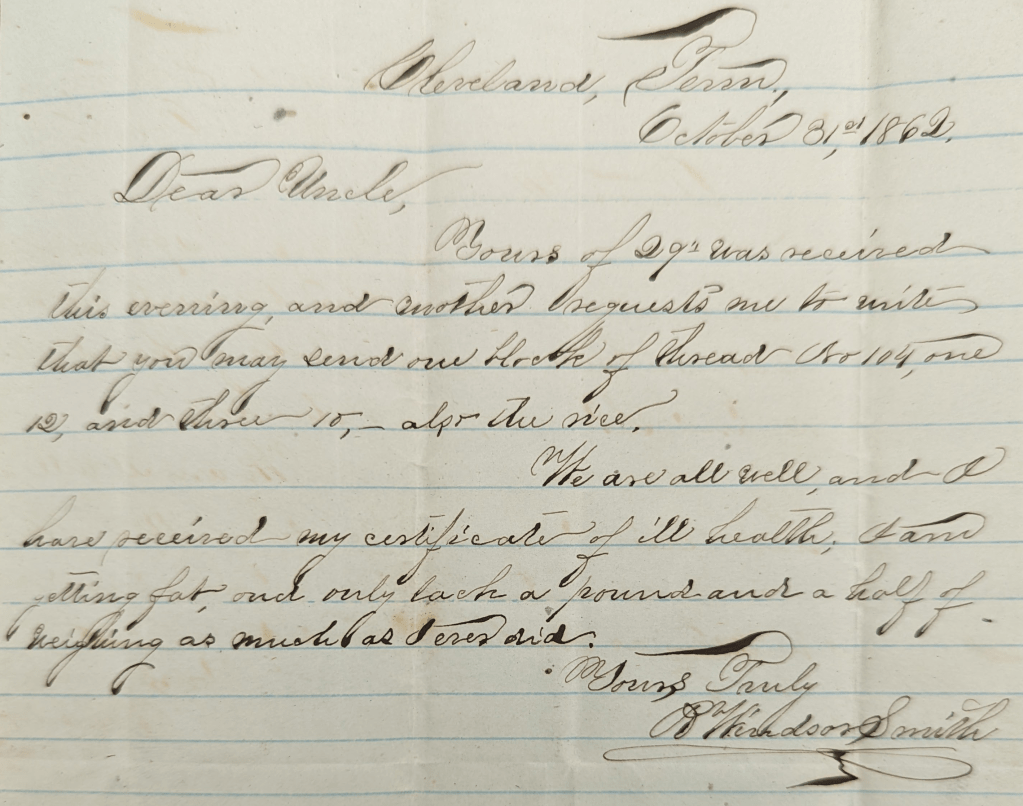 Cleveland, Tenn.,
October 31,st 1862.
Dear Uncle,
Yours of 29th was received
this evening, and mother requests me to write
that you may send one block of thread No 104, one
12, and three 10,– also the rice.
We are all well, and I
have received my certificate of ill health, I am
getting fat, and only lack a pound and a half of
weighing as much as I ever did.
Yours Truly
R Windsor Smith